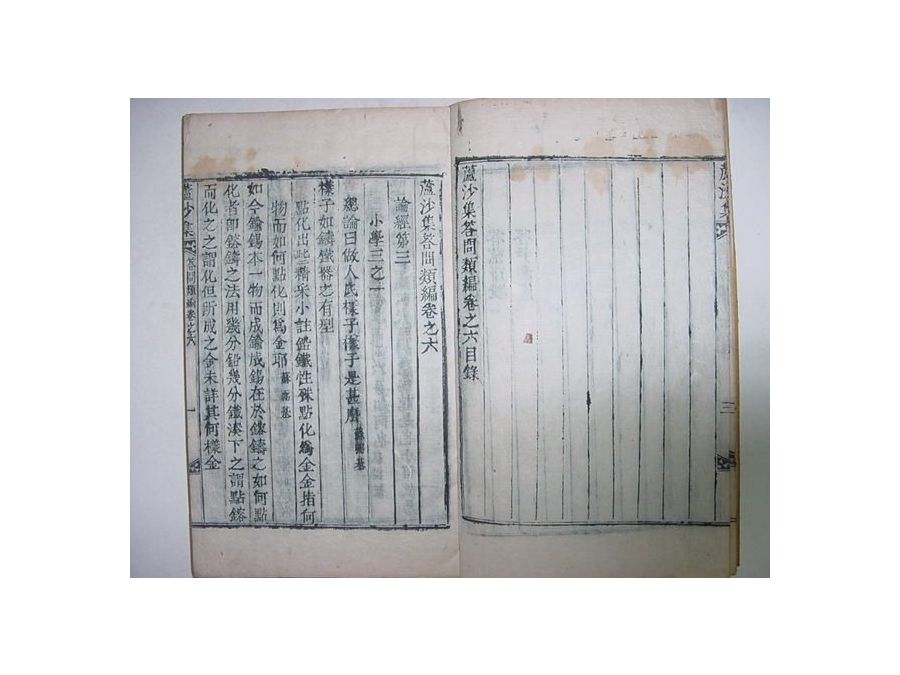 蘆沙集
三
蘆沙集答問類編卷之六目錄
蘆沙集答問類編卷之六
論經第三
小學三之一
總論曰做人底樣子樣子是甚麼
樣子如鑄鐵器之有型
點化出此精采小註鉛鐵性殊點化爲金金指何
物而如何點化則爲金耶
如今鍮錫本一物而成鍮成錫在於鎔鑄之如何點
化者卽鎔鑄之法用幾分鉛幾分鐵湊下之謂點鎔
而化之之謂化但所成之金未詳其何樣金
蘆沙集 答問類編卷之六 一